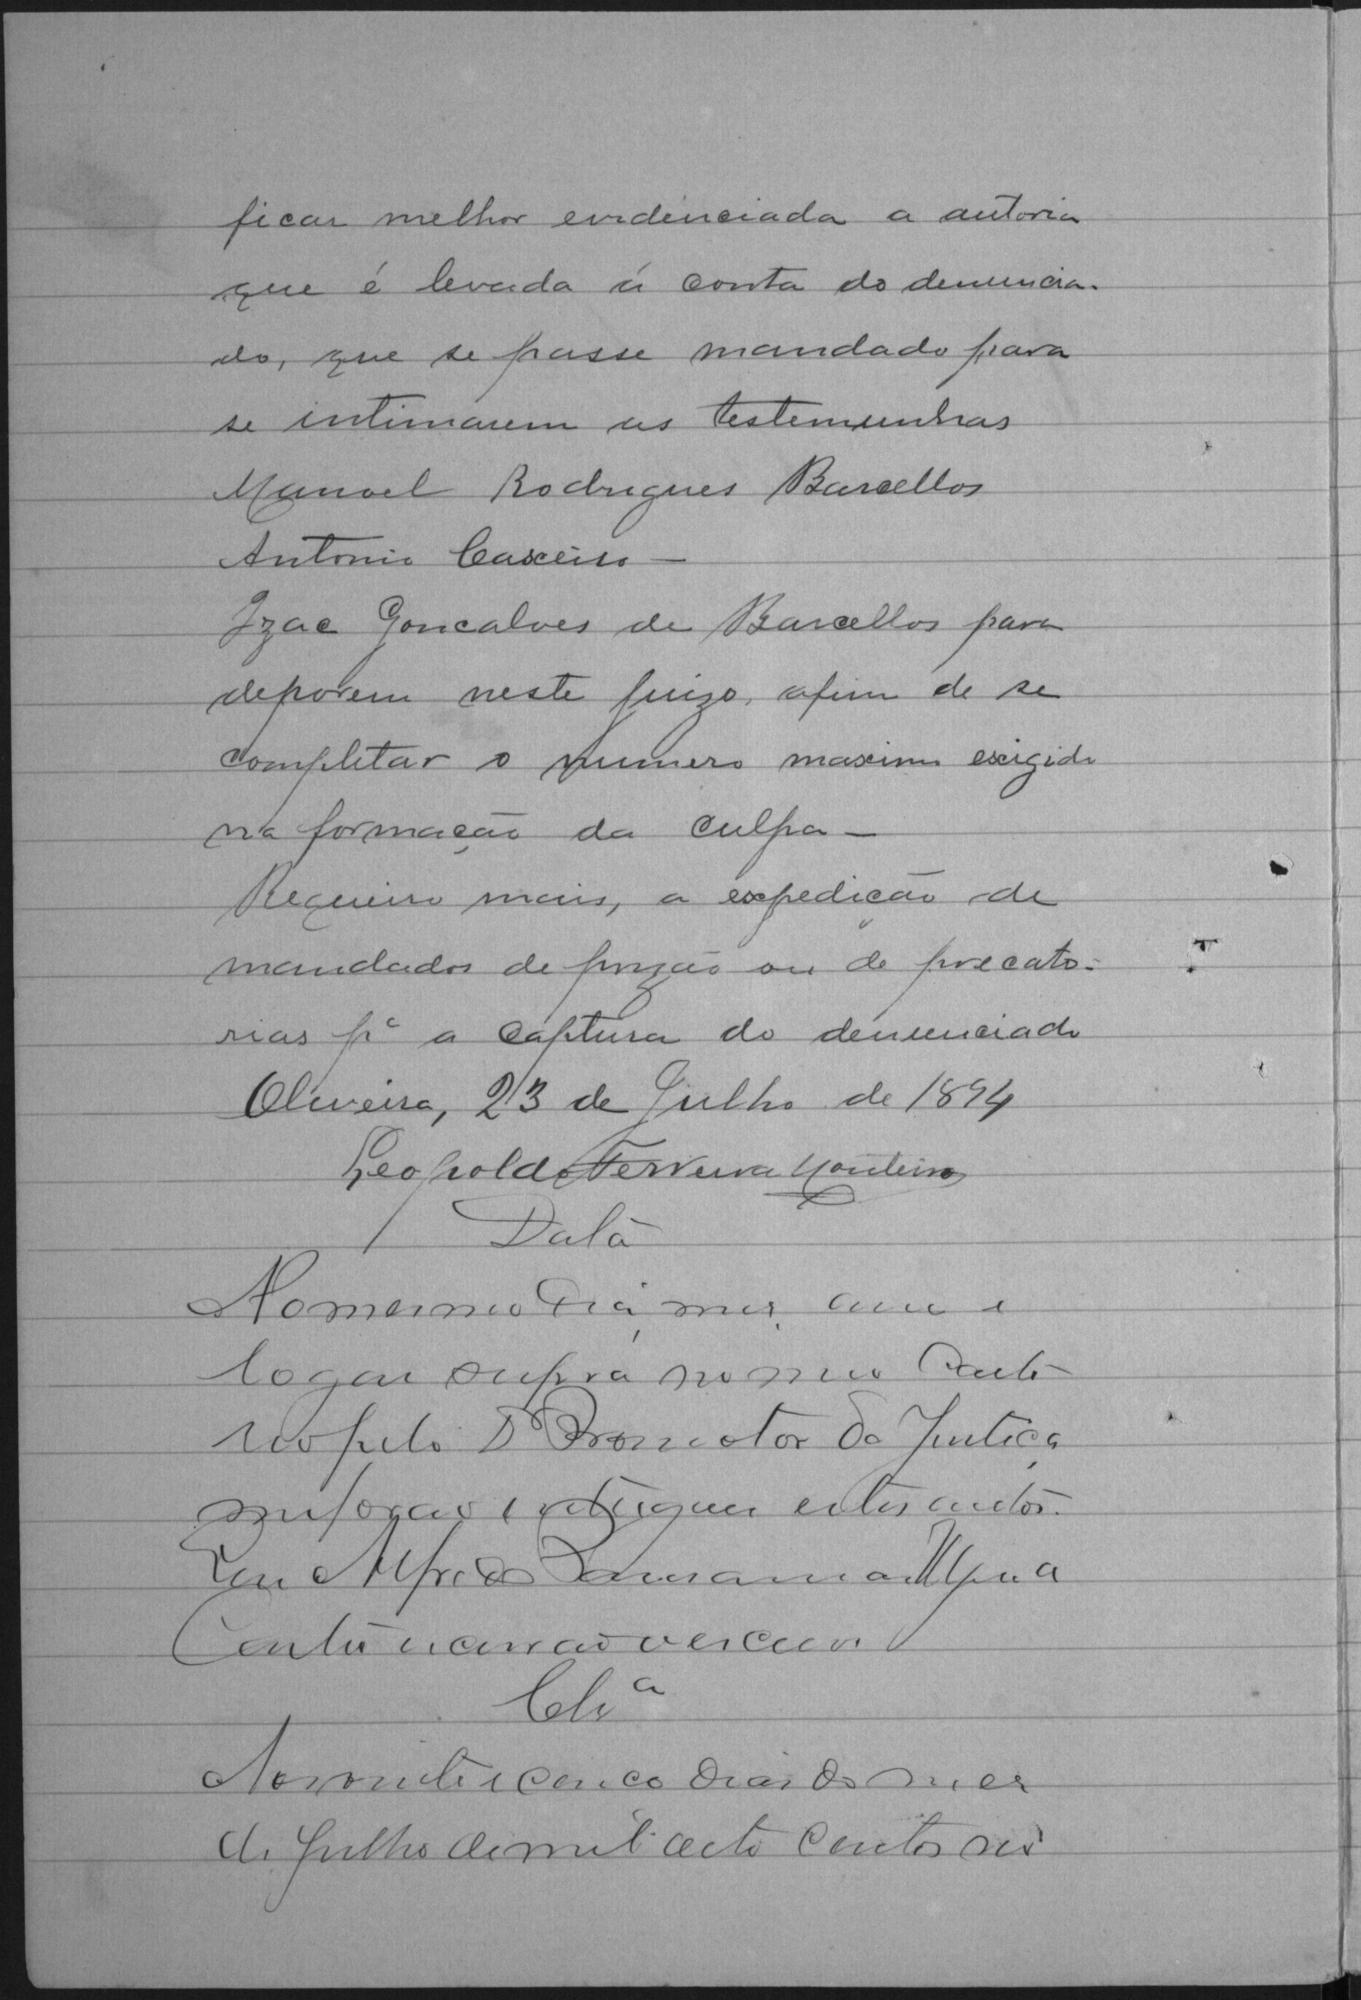 ficar melhor evidenciada a autoria
que é levada á conta do denuncia-
do, que se passe mandado para
se intimarem as testemunhas
Manoel Rodrigues Barcellos
Antonio Caxeiro —
Izac Goncalves de Barcellos para
deporem neste juizo, afim de se
completar o numero maximo exigido
na formação da culpa —
Requeiro mais, a expedicão de
mandados de prizão ou de precato-
rias pª a captura do denunciado
Oliveira, 23 de Julho de 1894
Leopoldo Ferreira Monteiro
Data
No mesmo dia, mez, anno e
logar supra no meo Carto
rio pelo Dr Promotor da Justiça
me forão entregues estes autos.
Eu Alfredo
escrivão o escrevi
Clsª
Aos vinte e cinco dias do mez
de Julho de mil oito centos no